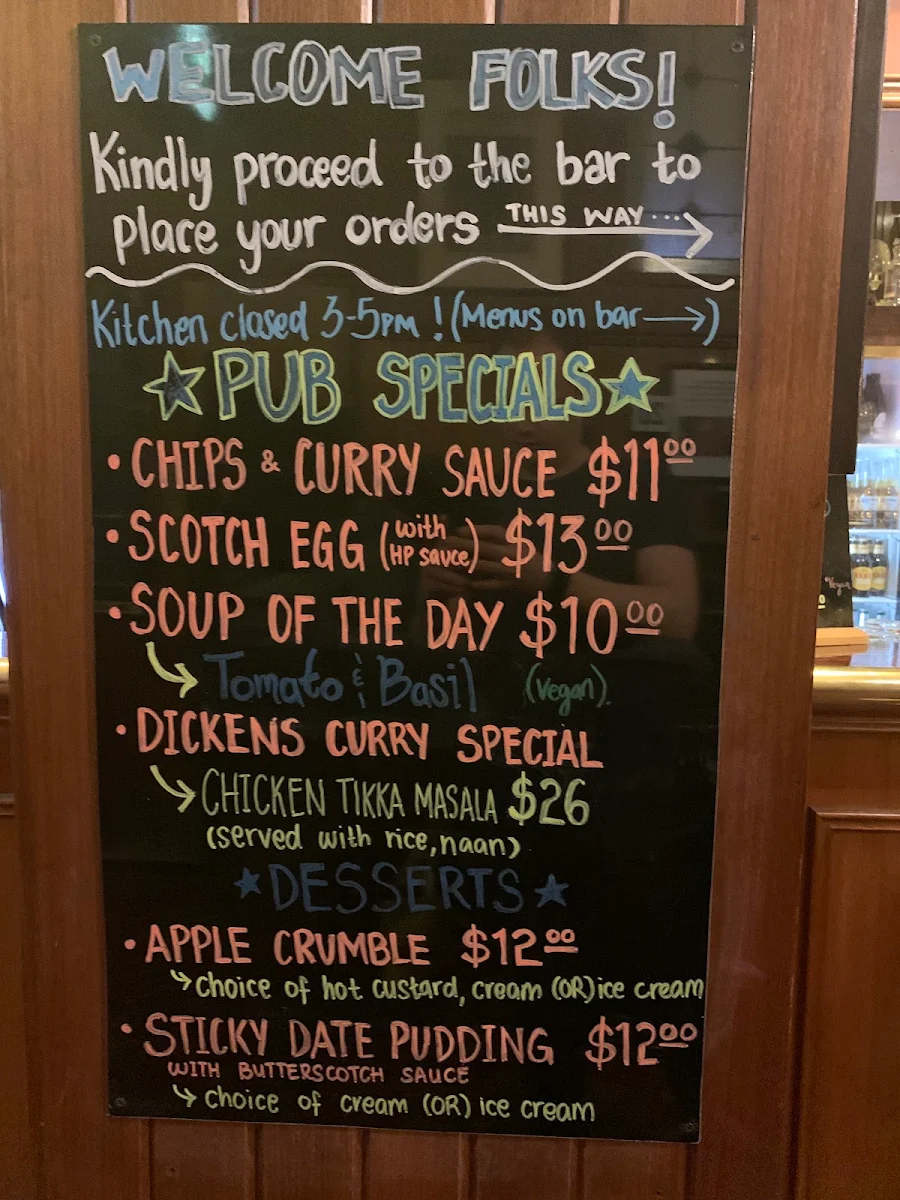 WELCOME FOLKS!
Kindly proceed to the bar to
place your orders THIS WAY...
Kitchen closed 3-5PM! (Menus on bar →)
★ PUB SPECIALS ★
• CHIPS & CURRY SAUCE $11 00
• SCOTCH EGG (with HP sauce) $13 00
• SOUP OF THE DAY $10 00
Tomato & Basil (vegan).
• DICKENS CURRY SPECIAL
CHICKEN TIKKA MASALA $26
(served with rice, naan)
★ DESSERTS ★
• APPLE CRUMBLE $12 00
choice of hot custard, cream (OR) ice cream
• STICKY DATE PUDDING $12 00
WITH BUTTERSCOTCH SAUCE
choice of cream (OR) ice cream
Vegan